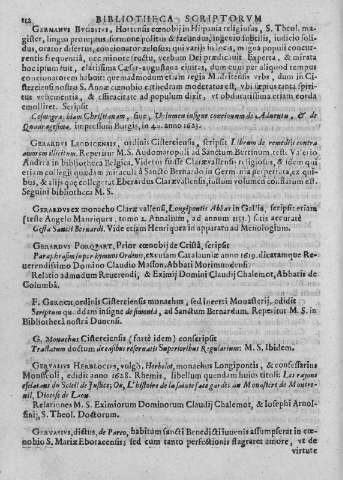 112 BIBLIOTHECA SCRIPTORVM
GERMANVS BVGDITIS, Hortensis cœnobij in Hispania religiosus, S. Theol. magister, lingua promptus, sermone politus & facundus, ingenio subtilis, iudicio solidus, orator disertus, concionator zelosus; qui varijs in locis, magna populi concurrentis frequentia, nec minore fructu, verbum Dei prædicauit Experta, & mirata
hoc ipsum fuit, clarissima Cæsar-augustana ciuitas, dum eum per aliquod tempus
concionatorem habuit: quemadmodum etiam regia Madritensis vrbs, dum in Cisterciensi nostro S. Annæ cœnobio moderator est, vbi sæpius tanta spiritus vehementia, & efficacitate ad populum dixit, vt obduratissima etiam corda
emolliret. Scripsit
idem Christianam, siue, Volumen insigne concionum de Aduentu, & de
Quadragesima, impressum Burgis, in 4. anno 1623.
GERARDVS LEODICENSIS, ordinis Cisterciensis, scripsit Librum de remedijs contra
amorem illicitum. Reperitur M. S. Audomaropoli ad Sanctum Bertinum, teste Valerio
Andrea in bibliotheca Belgica. Videtur fuisse Claræuallensis religiosus, & idem qui
etiam collegit quædam miracula à Sancto Bernardo in Germania perpetrata, ex quibus, & alijs quæ collegerat Eberardus Claræuallensis, iustum volumen conflatum est.
Sequini bibliotheca M. S.
GERARDVS ex monacho Claræ vallensi, Longipontis Abbas in Gallia, scripsit etiam
(teste Angelo Manriquez, tomo 2. Annalium, ad annum 1153.) satis accuratè
Gesta Sancti Bernardi. Vide etiam Henriquez in apparatu ad Menologium.
GERARDVS PORQPART, Prior cœnobij de Cristâ, scripsit
Paraphrasim super hymnos Ordinis, excusam Catalauni anno 1619. dicatamque Reuerendissimo Domino Claudio Masson, Abbati Morimundensi:
Relatio admodum Reuerendi, & Eximij Domini Claudij Chalemot, Abbatis de
Columbâ.
ordinis Cisterciensis monachus, sed incerti Monasterij, edidit
Scriptum quoddam insigne de simonia, ad Sanctum Bernardum. Reperitur M. S. in
Bibliothecâ nostrâ Dunensi.
G. Monachus Cisterciensis (fortè idem) conscripsit
Tractatum doctum de casibus reseruatis Superioribus Regularium: M. S. Ibidem.
GERVASIVS HERBLOCIVS, vulgò, Herbelot, monachus Longipontis, & confessarius
anno 1628. Rhemis, libellum quemdam huius tituli: Les rayons
esclatans du Soleil de Iustice; Ou, L'histoire de la sainte face gardée au Monastere de Montreuil, Diocese de Laon.
Relationes M. S. Eximiorum Dominorum Claudij Chalemot, & Iosephi Arnolfini, S. Theol. Doctorum.
GERVASIVS, dictus, de Parco, habitum sancti Benedicti iuuenis assumpserat in cœnobio S. Mariæ Eboracensis; sed cum tanto perfectionis flagraret amore, vt de
virtute